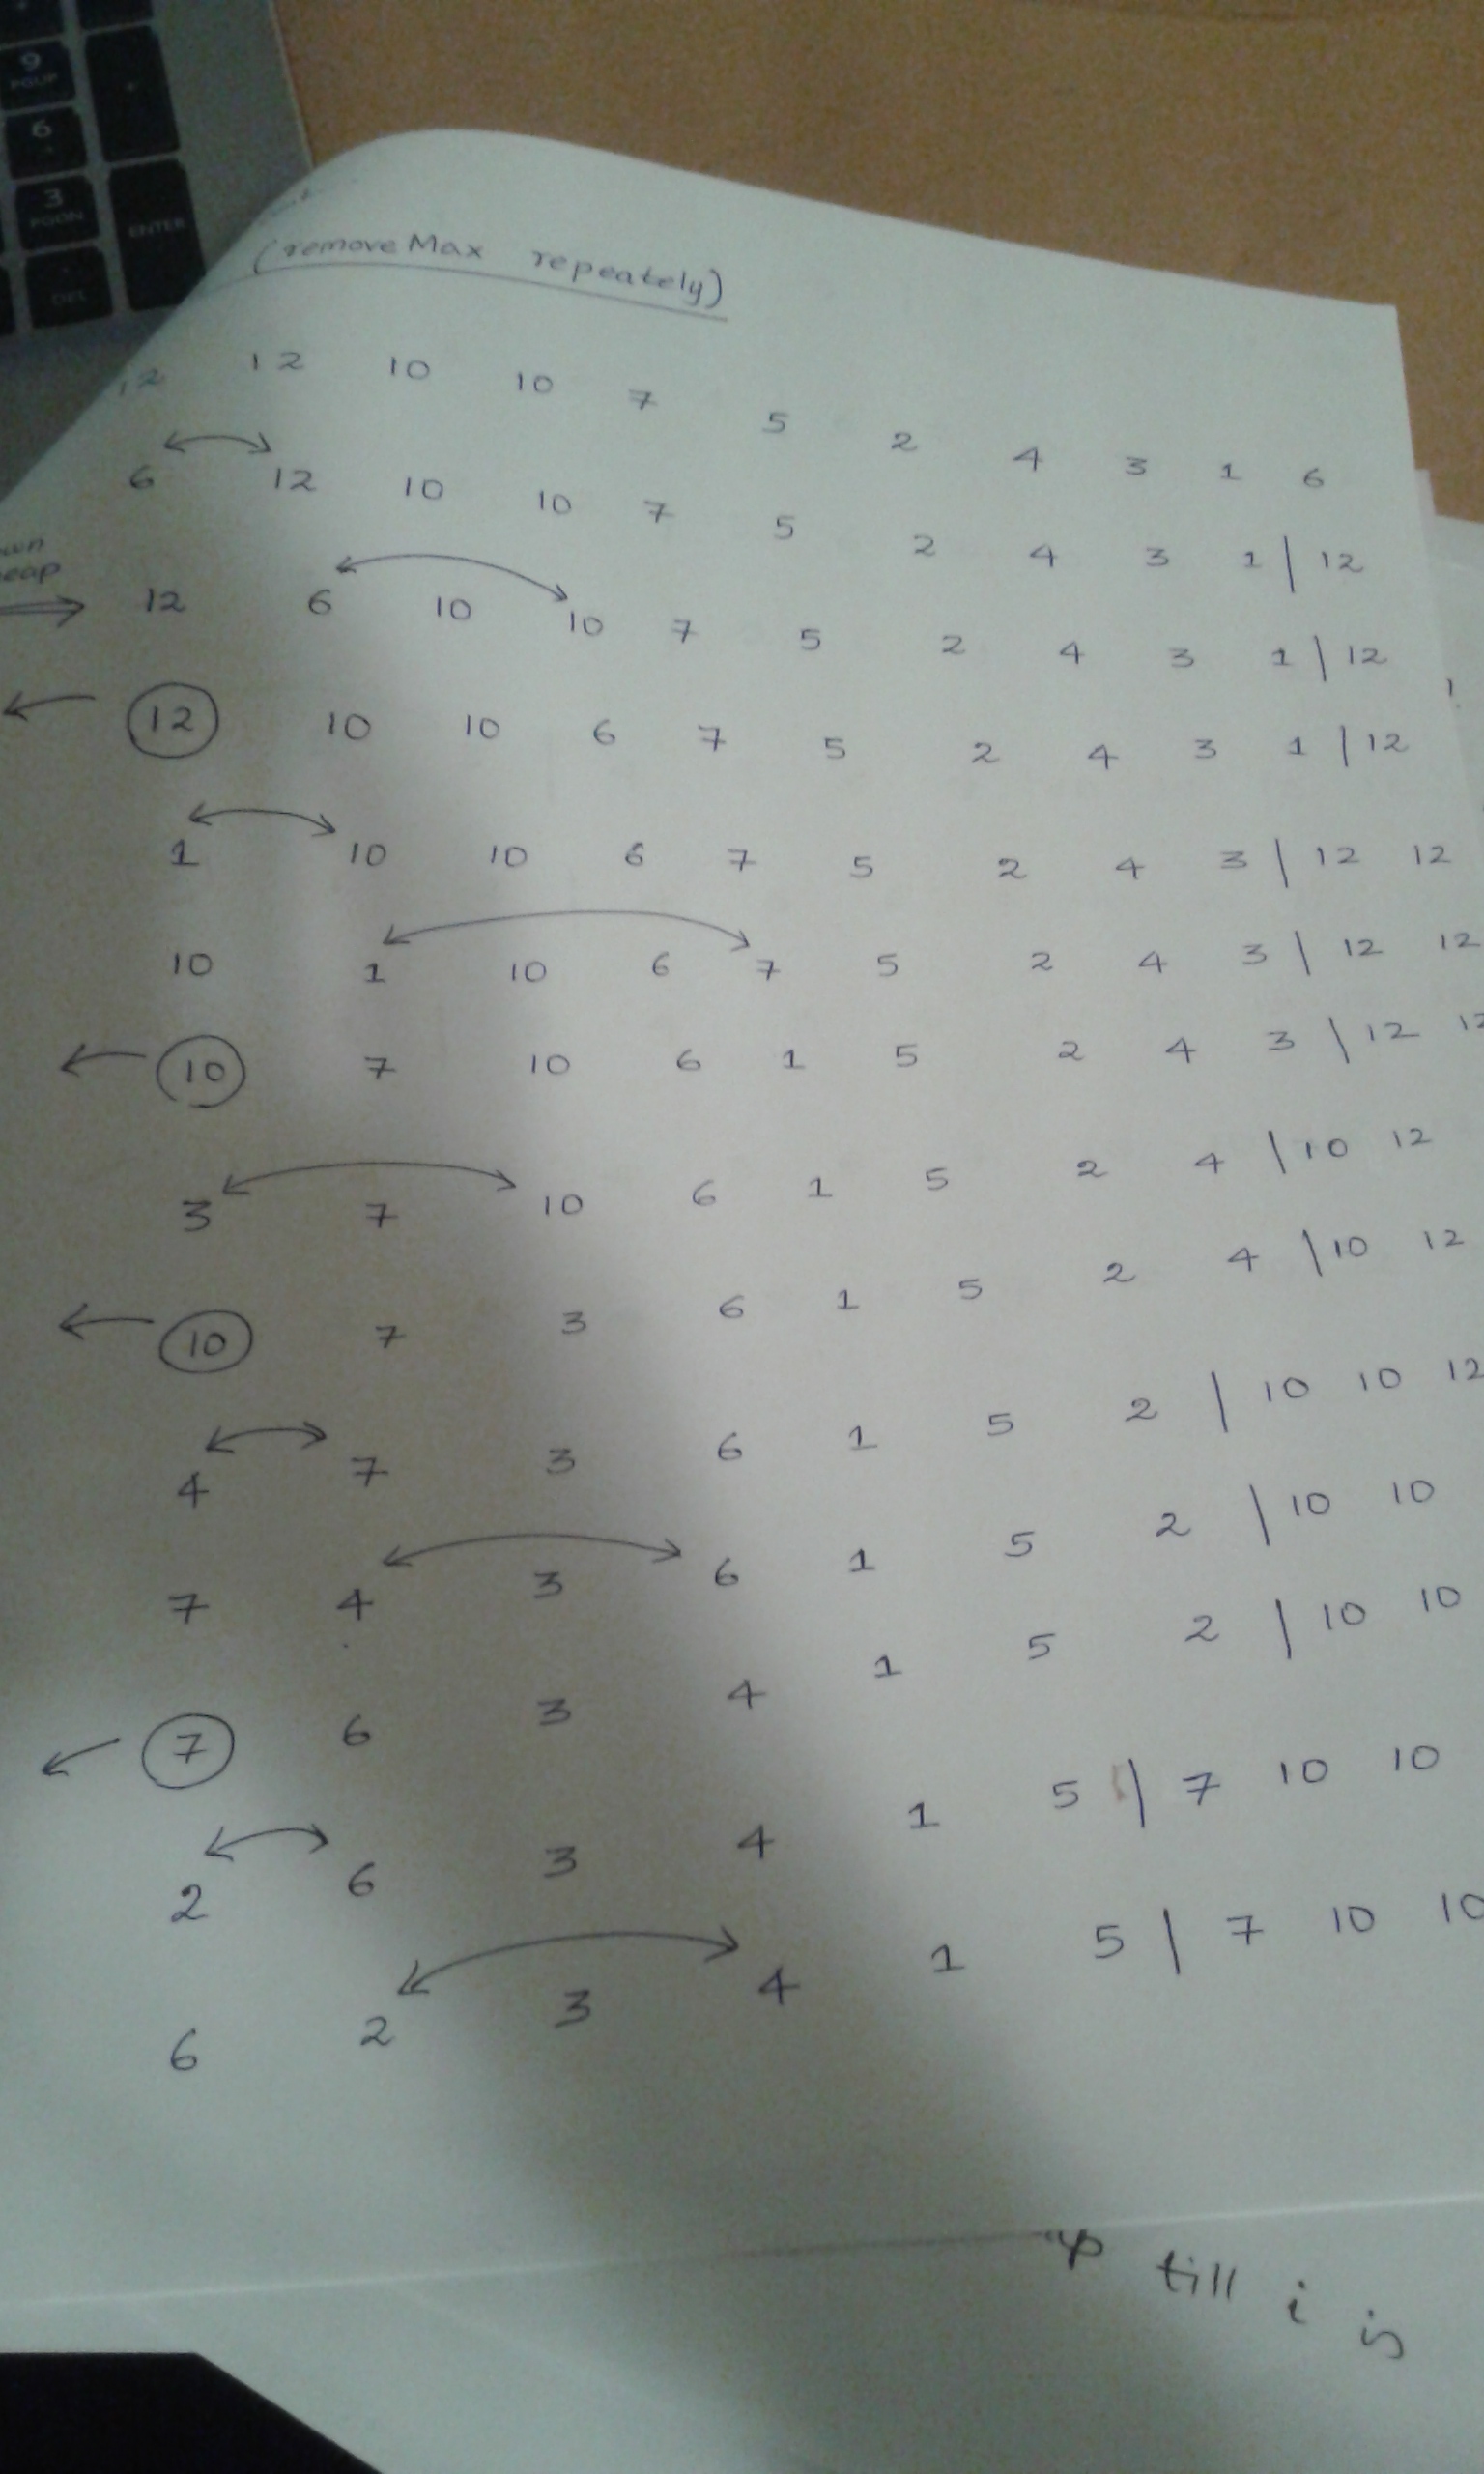 9
PGUP
6
3
PGDN
ENTER
DEL
(removeMax repeately)
12 12 10 10 7 5 2 4 3 1 6
6 12 10 10 7 5 2 4 3 1 | 12
12 6 10 10 7 5 2 4 3 1 | 12
12 10 10 6 7 5 2 4 3 1 | 12
1 10 10 6 7 5 2 4 3 | 12 12
10 1 10 6 7 5 2 4 3 | 12 12
10 7 10 6 1 5 2 4 3 | 12 12
3 7 10 6 1 5 2 4 | 10 12
10 7 3 6 1 5 2 4 | 10 12
4 7 3 6 1 5 2 | 10 10 12
7 4 3 6 1 5 2 | 10 10
7 6 3 4 1 5 2 | 10 10
2 6 3 4 1 5 | 7 10 10
6 2 3 4 1 5 | 7 10 10
till i is